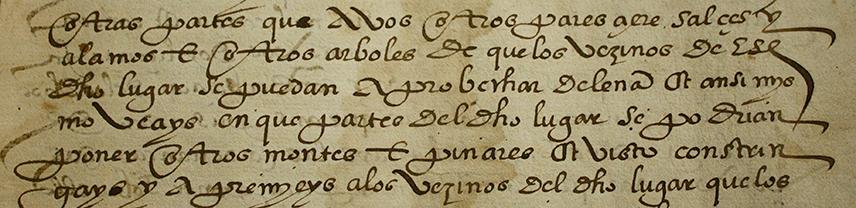 otras partes que a vos otros paresçiere salçes y
alamos E otros arboles de que los vezinos de ese
dho lugar se puedan aprobechar de leña Et ansi mys
mo veays en que partes del dho lugar se podrian
poner otros montes E pinares Et visto constrin
gays y apremyeys a los vezinos del dho lugar que los